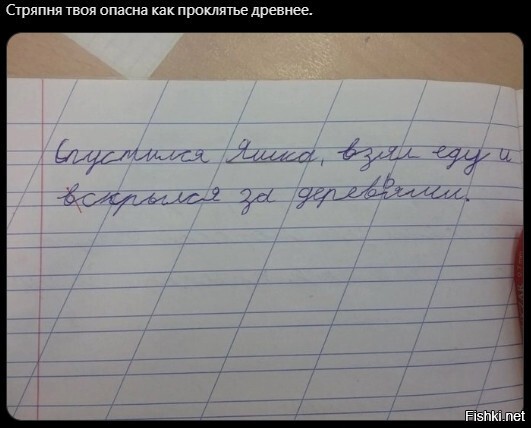 Стряпня твоя опасна как проклятье древнее.
Спустился Яшка, взял еду и
вскрылся за деревьями.
Fishki.net